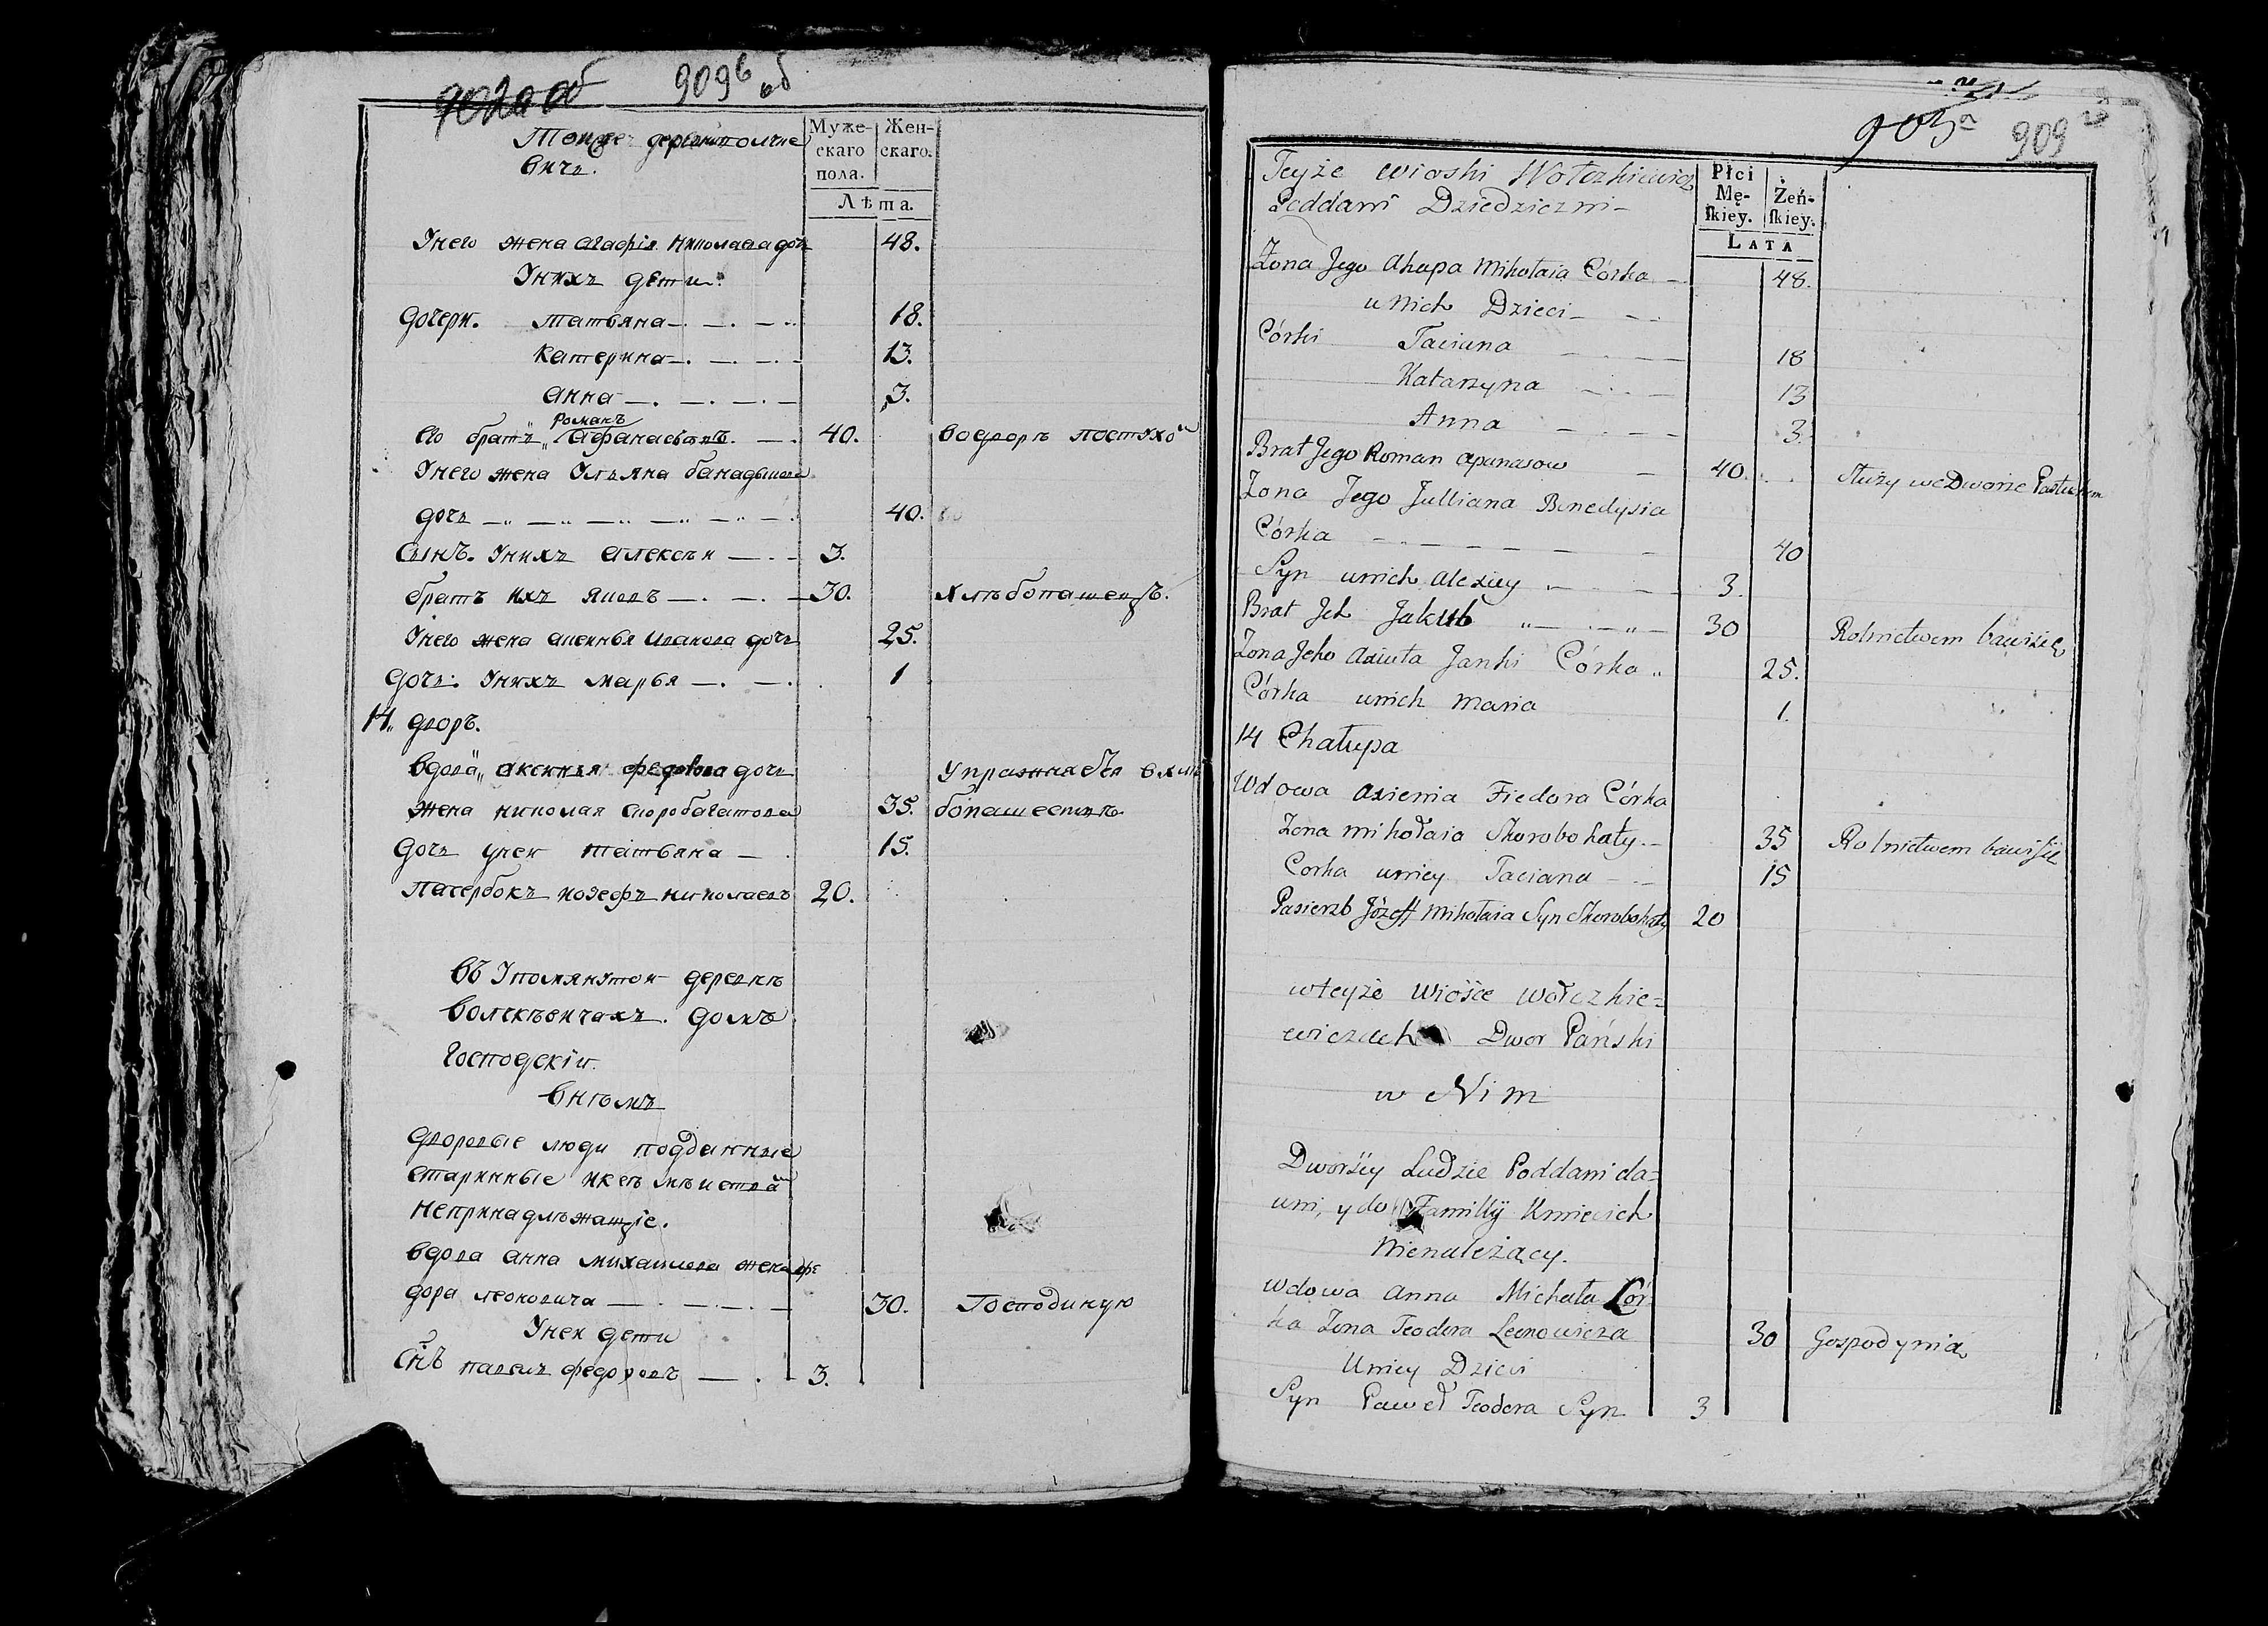 909в об
Муже- Жен-
скаго скаго.
пола.
Лѣта.
вичъ.
Унего жена агафія Николаева дочь 48.
Унихъ дети.
Дочери. татьяна 18.
катерина 13.
анна 3.
Романъ
его братъ афанасьевъ. 40.
Унего жена
дочь 40.
Сынъ. Унихъ алексѣй 3.
братъ ихъ яковъ 30. хлѣбопашецъ.
Унего жена аксинья иванова дочь 25.
дочь. Унихъ марья 1
14. дворъ.
вдова аксинья федорова дочь упражняется в хлѣ
жена николая скоробагатова 35. бопашествѣ.
Дочь унеи татьяна 15.
пасербокъ иозефъ николаевъ 20.
въ Упомянутой деревнѣ
волчкѣвичахъ. домъ
Господскій.
внѣмъ
дворовые люди подданные
старинные
непринадлѣжащіе.
вдова анна михаилова жена фе
дора леоновича 30. Господинную
Унеи дети
Сñъ павелъ федоровъ 3.
903а 909
Teyże wioski Wołczkiewicz
Poddani Dziedziczni
Płci
Mę- Żeń-
skiey. skiey.
LATA
Żona Jego Ahapa Mikołaia Córka 48.
u Nich Dzieci
Córki Taciana 18
Katarzyna 13
Anna 3.
Brat Jego Roman Apanasow 40. służy we Dworze Pastuchem
Żona Jego Julliana Benedysia
Córka 40
Syn unich Alexiey 3.
Brat Jch Jakub 30 Rolnictwem bawi się
Żona Jeho Axiuta Janki Córka 25.
Córka unich Maria 1.
14 Chałupa
Wdowa Axienia Fiedora Córka
Żona Mikołaia Skorobohaty 35 Rolnictwem bawi się
Corka uniey Taciana 15
Pasierzb Józeff Mikołaia Syn Skorobohaty 20
wteyże wiosce Wołczkie-
wiczach Dwor Pański
w Nim
Dworscy Ludzie Poddani da-
wni, y do Familly Kmiecich
Nienależący.
Wdowa Anna Michała Cór-
ka Żona Teodora Leonowicza 30 Gospodynia
Uniey Dzieci
Syn Paweł Teodora Syn 3